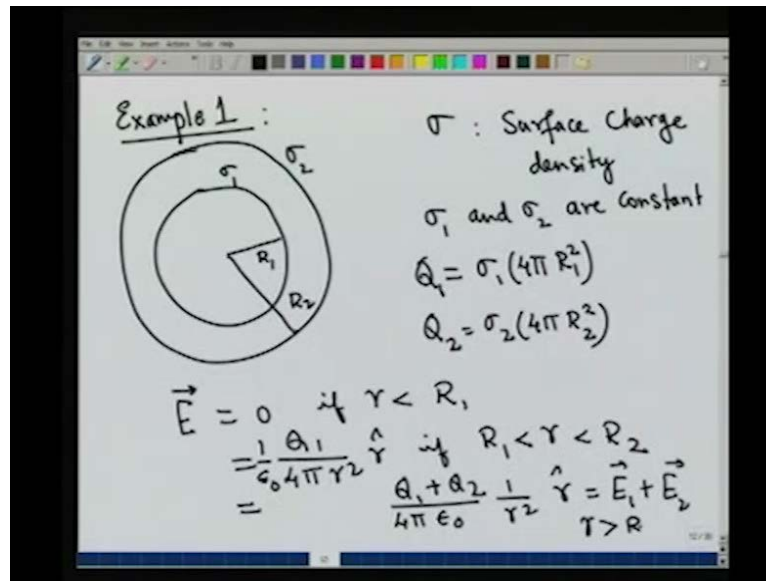 File Edit View Insert Actions Tools Help
Example 1 :
σ : Surface Charge
density
σ₂
σ₁
R₁
R₂
σ₁ and σ₂ are constant
Q₁ = σ₁(4π R₁²)
Q₂ = σ₂(4π R₂²)
E⃗ = 0 if r < R₁
= 1/ε₀ Q₁/4πr² r̂ if R₁ < r < R₂
= Q₁ + Q₂/4π ε₀ 1/r² r̂ = E⃗₁ + E⃗₂
r > R